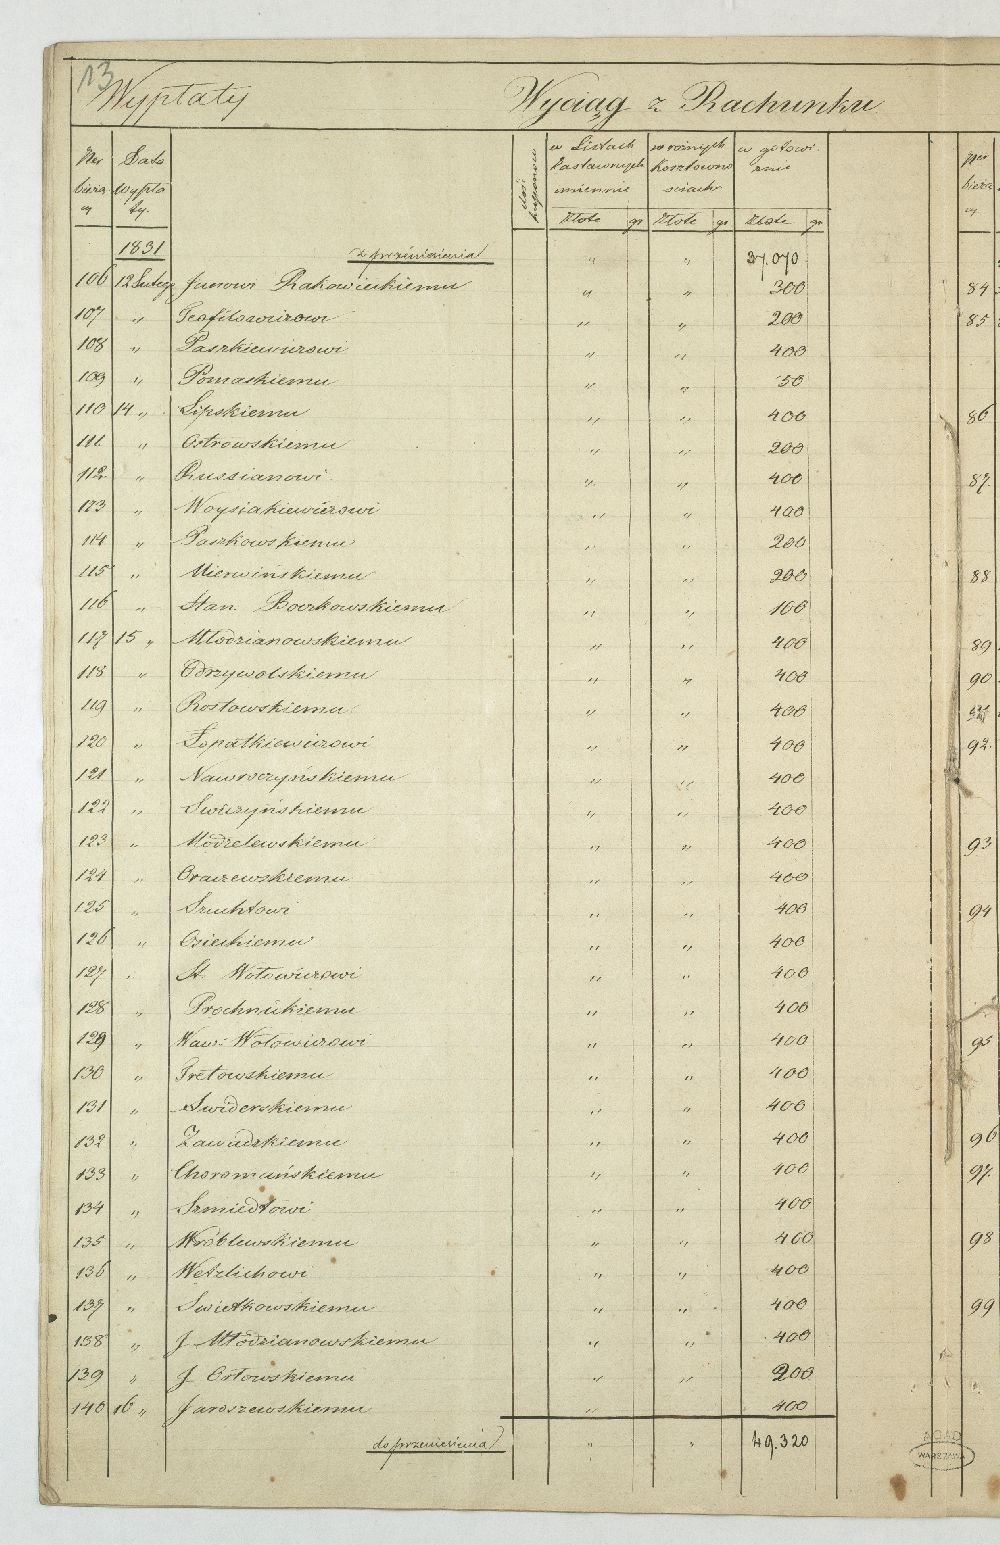 13
Wypłaty Wyciąg z Rachunku
Ner bieżący Data wypłaty. ilość kuponów w Listach Zastawnych imiennie w różnych Kosztownościach w gotowiznie Ner bieżą cy
Złote gr Złote gr Złote gr
1831 z przeniesienia " " 37.070
106 12 Lutego Junowi Rakowieckiemu " " 300 84
107 " Teofilowiczowi " " 200 85
108 " Paszkiewiczowi " " 400
109 " Pomaskiemu " " 50
110 14 " Lipskiemu " " 400 86
111 " Ostrowskiemu " " 200
112 " Russianowi " " 400 87.
113 " Woysiakiewiczowi " " 400
114 " Paszkowskiemu " " 200
115 " Mierwińskiemu " " 200 88
116 " Stan. Boczkowskiemu " " 100
117 15 " Młodzianowskiemu " " 400 89
118 " Odrzywolskiemu " " 400 90
119 " Rostowskiemu " " 400
120 " Łopatkiewiczowi " " 400 92.
121 " Nawroczyńskiemu " " 400
122 " Swiezyńskiemu " " 400
123 " Modzelewskiemu " " 400 93
124 " Oraczewskiemu " " 400
125 " Szuchtowi " " 400 94
126 " Osieckiemu " " 400
127 " St. Wołowiczowi " " 400
128 " Prochnickiemu " " 400
129 " Waw: Wołowiczowi " " 400 95
130 " Gretowskiemu " " 400
131 " Swiderskiemu " " 400
132 " Zawadzkiemu " " 400 96
133 " Choromańskiemu " " 400 97.
134 " Szmiedtowi " " 400
135 " Wróblewskiemu " " 400 98
136 " Wetzlichowi " " 400
137 " Swietkowskiemu " " 400 99
138 " J Młodzianowskiemu " " 400
139 " J. Orłowskiemu " " 200
140 16 " Jaroszewskiemu " 400
do przeniesienia " " 49.320
AGAD
WARSZAWA